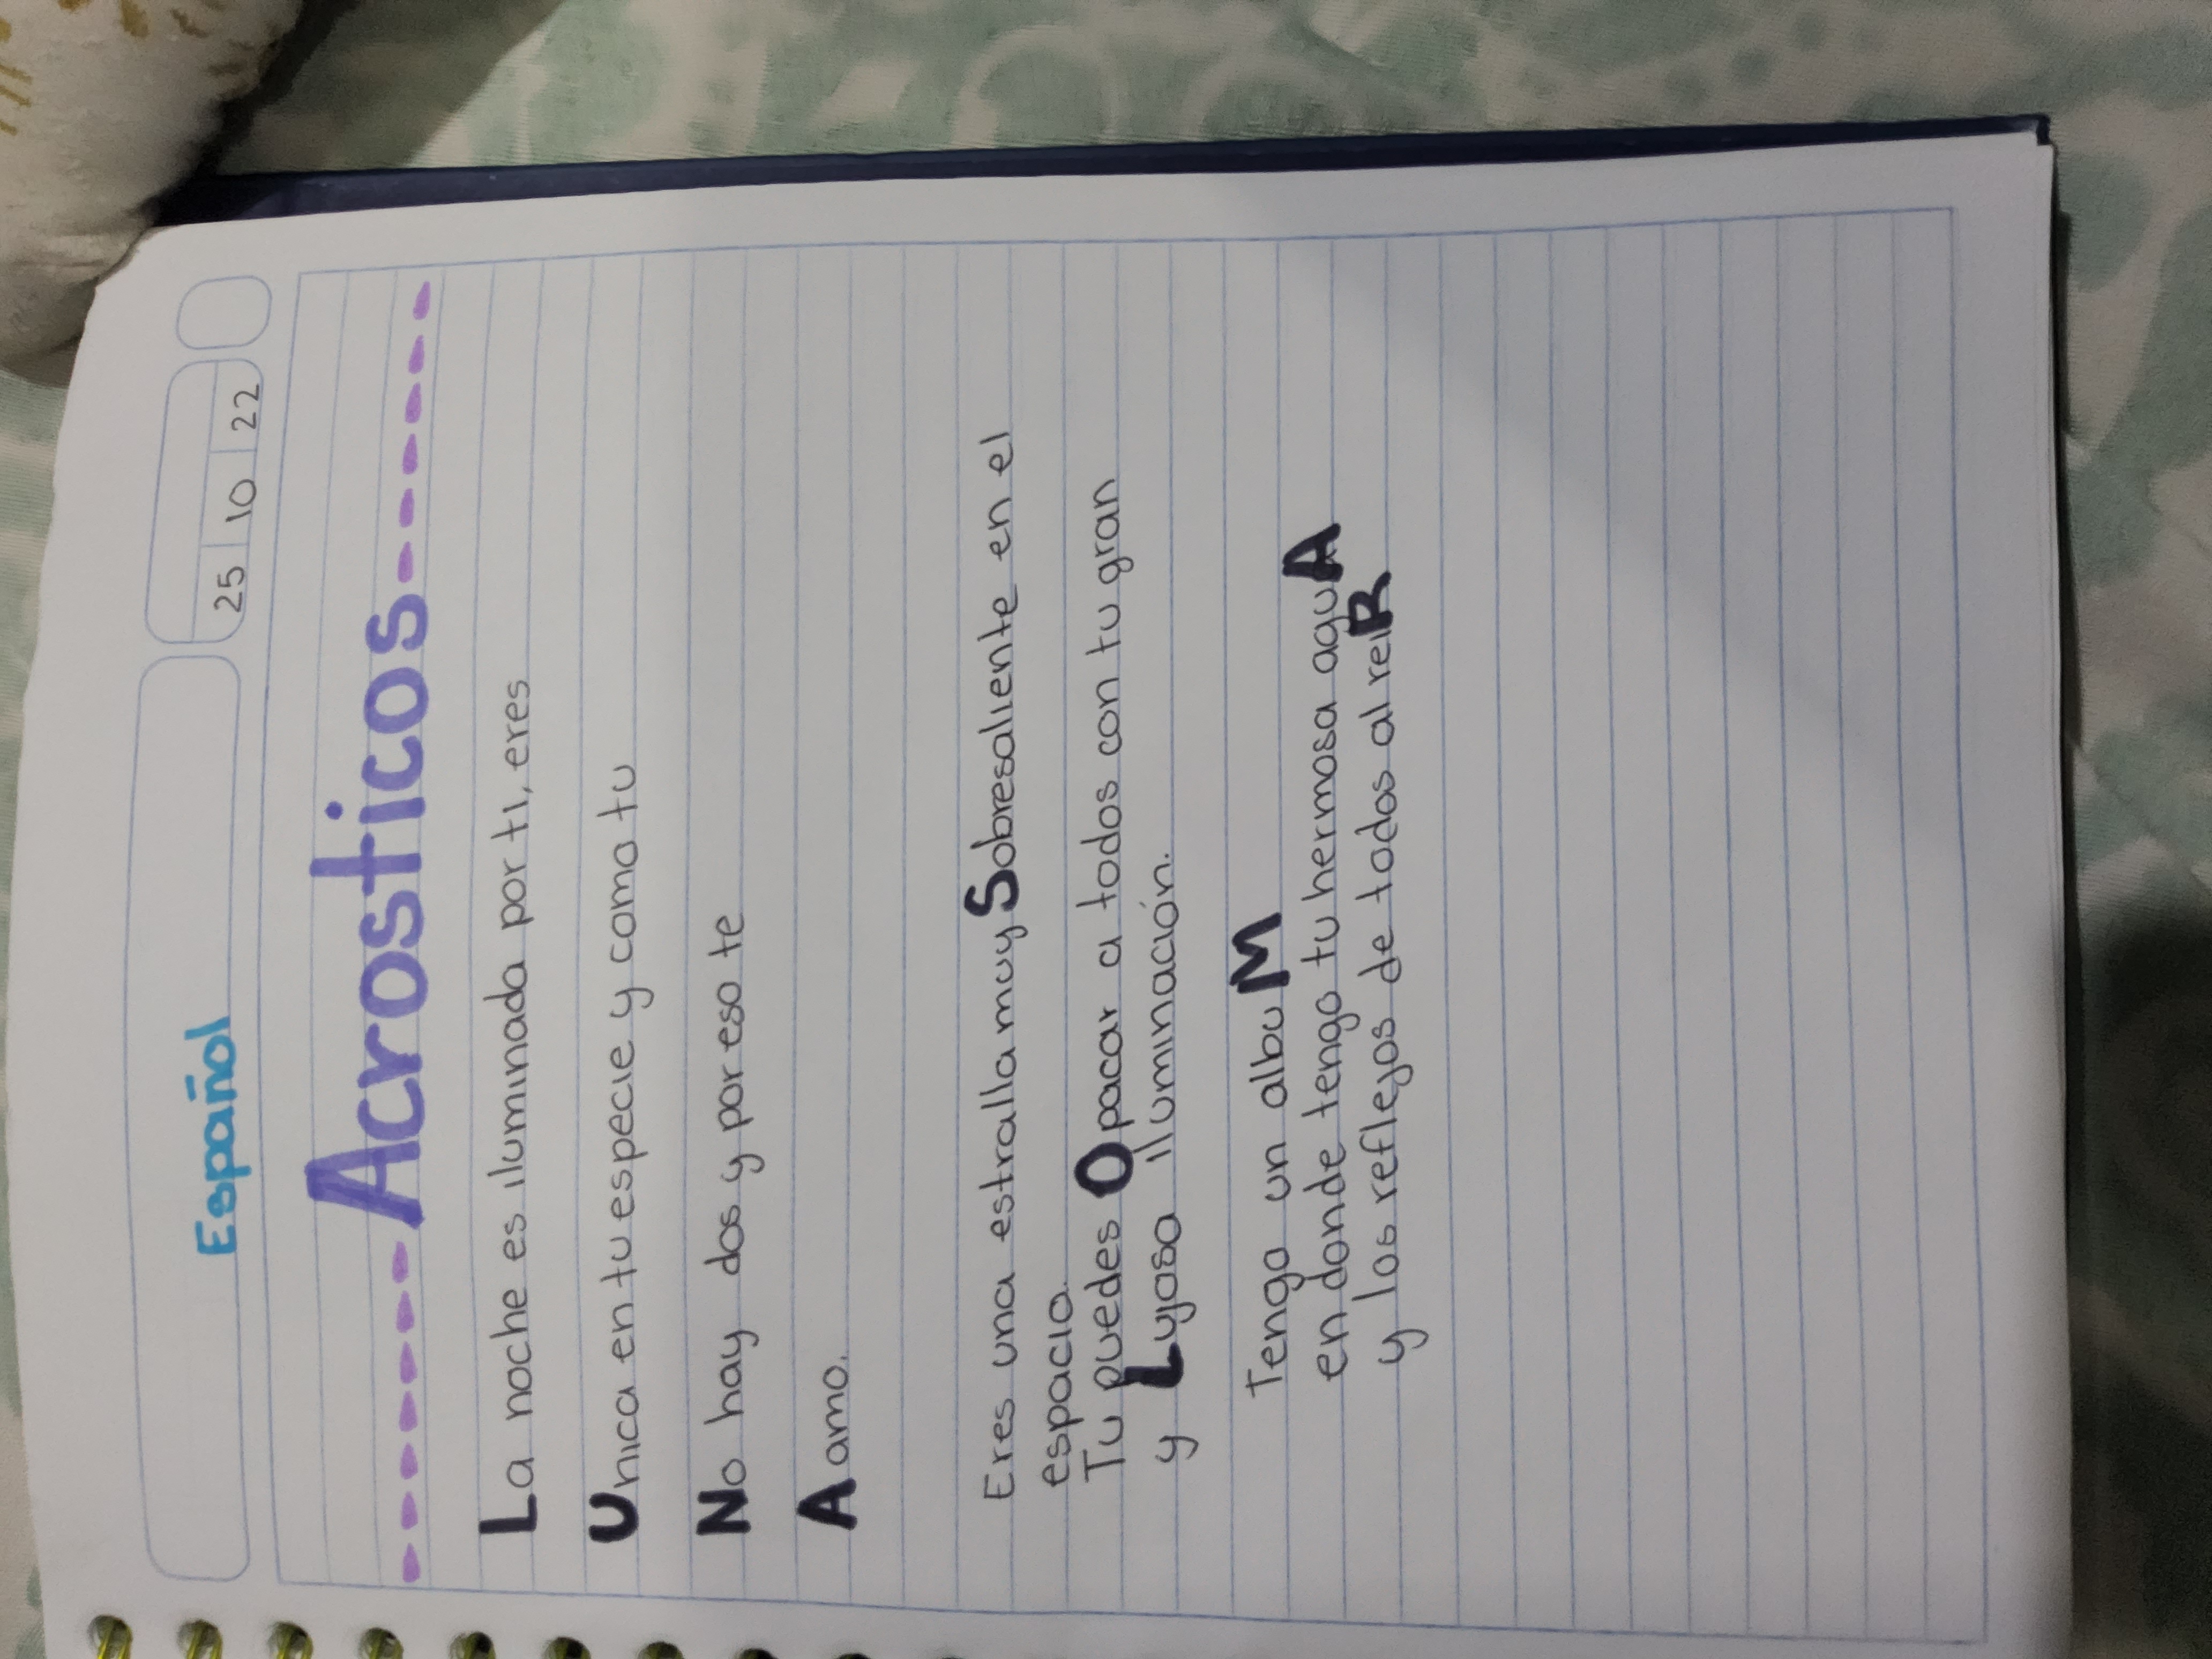 Español
25 10 22
Acrosticos
La noche es iluminada por ti, eres
Unica en tu especie y como tu
No hay dos y por eso te
A amo.
Eres una estralla muy Sobresaliente en el
espacio.
Tu puedes Opacar a todos con tu gran
y Lujosa iluminación.
Tengo un albuM
en donde tengo tu hermosa aguA
y los reflejos de todos al reiR